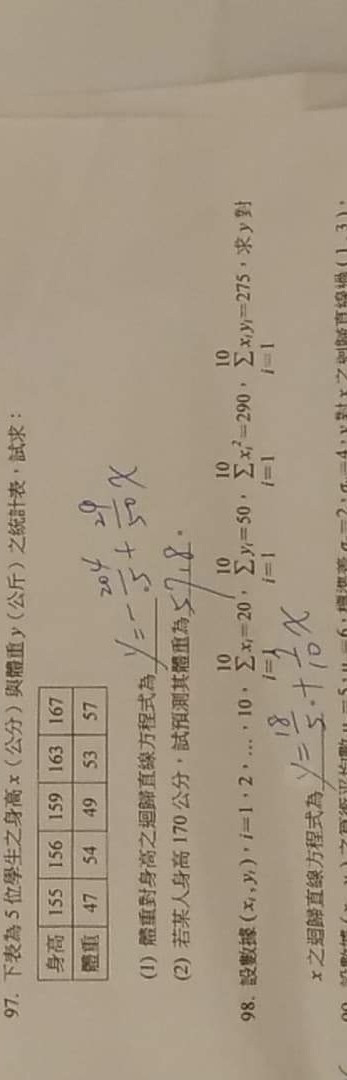 97. 下表為 5 位學生之身高 x（公分）與體重 y（公斤）之統計表，試求：
身高 155 156 159 163 167
體重 47 54 49 53 57
(1) 體重對身高之迴歸直線方程式為 y = - 204/5 + 29/50 x
(2) 若某人身高 170 公分，試預測其體重為 57.8。
98. 設數據 (xᵢ, yᵢ)，i=1，2，…，10，∑xᵢ=20，∑yᵢ=50，∑xᵢ²=290，∑xᵢyᵢ=275，求 y 對
10 10 10 10
i=1 i=1 i=1 i=1
x 之迴歸直線方程式為 y = 18/5 + 7/10 x